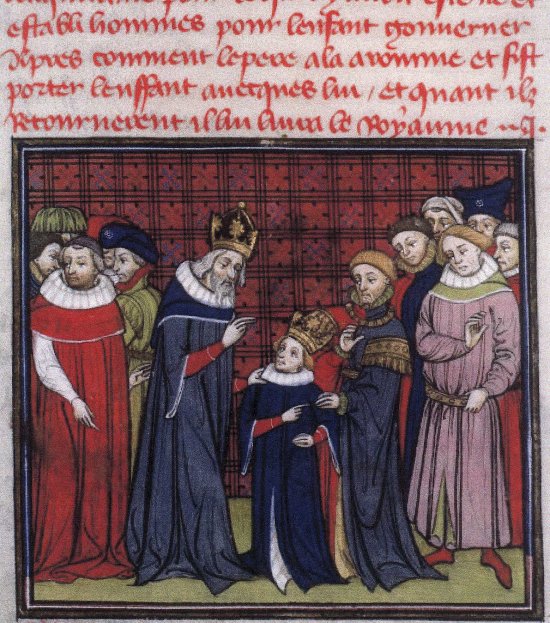 pour et
establi hommes pour lenfant gouuerner
Apres comment le pere ala a romme et fist
porter lenffant auecques lui / et quant ilz
Retournerent il lui le Royaume